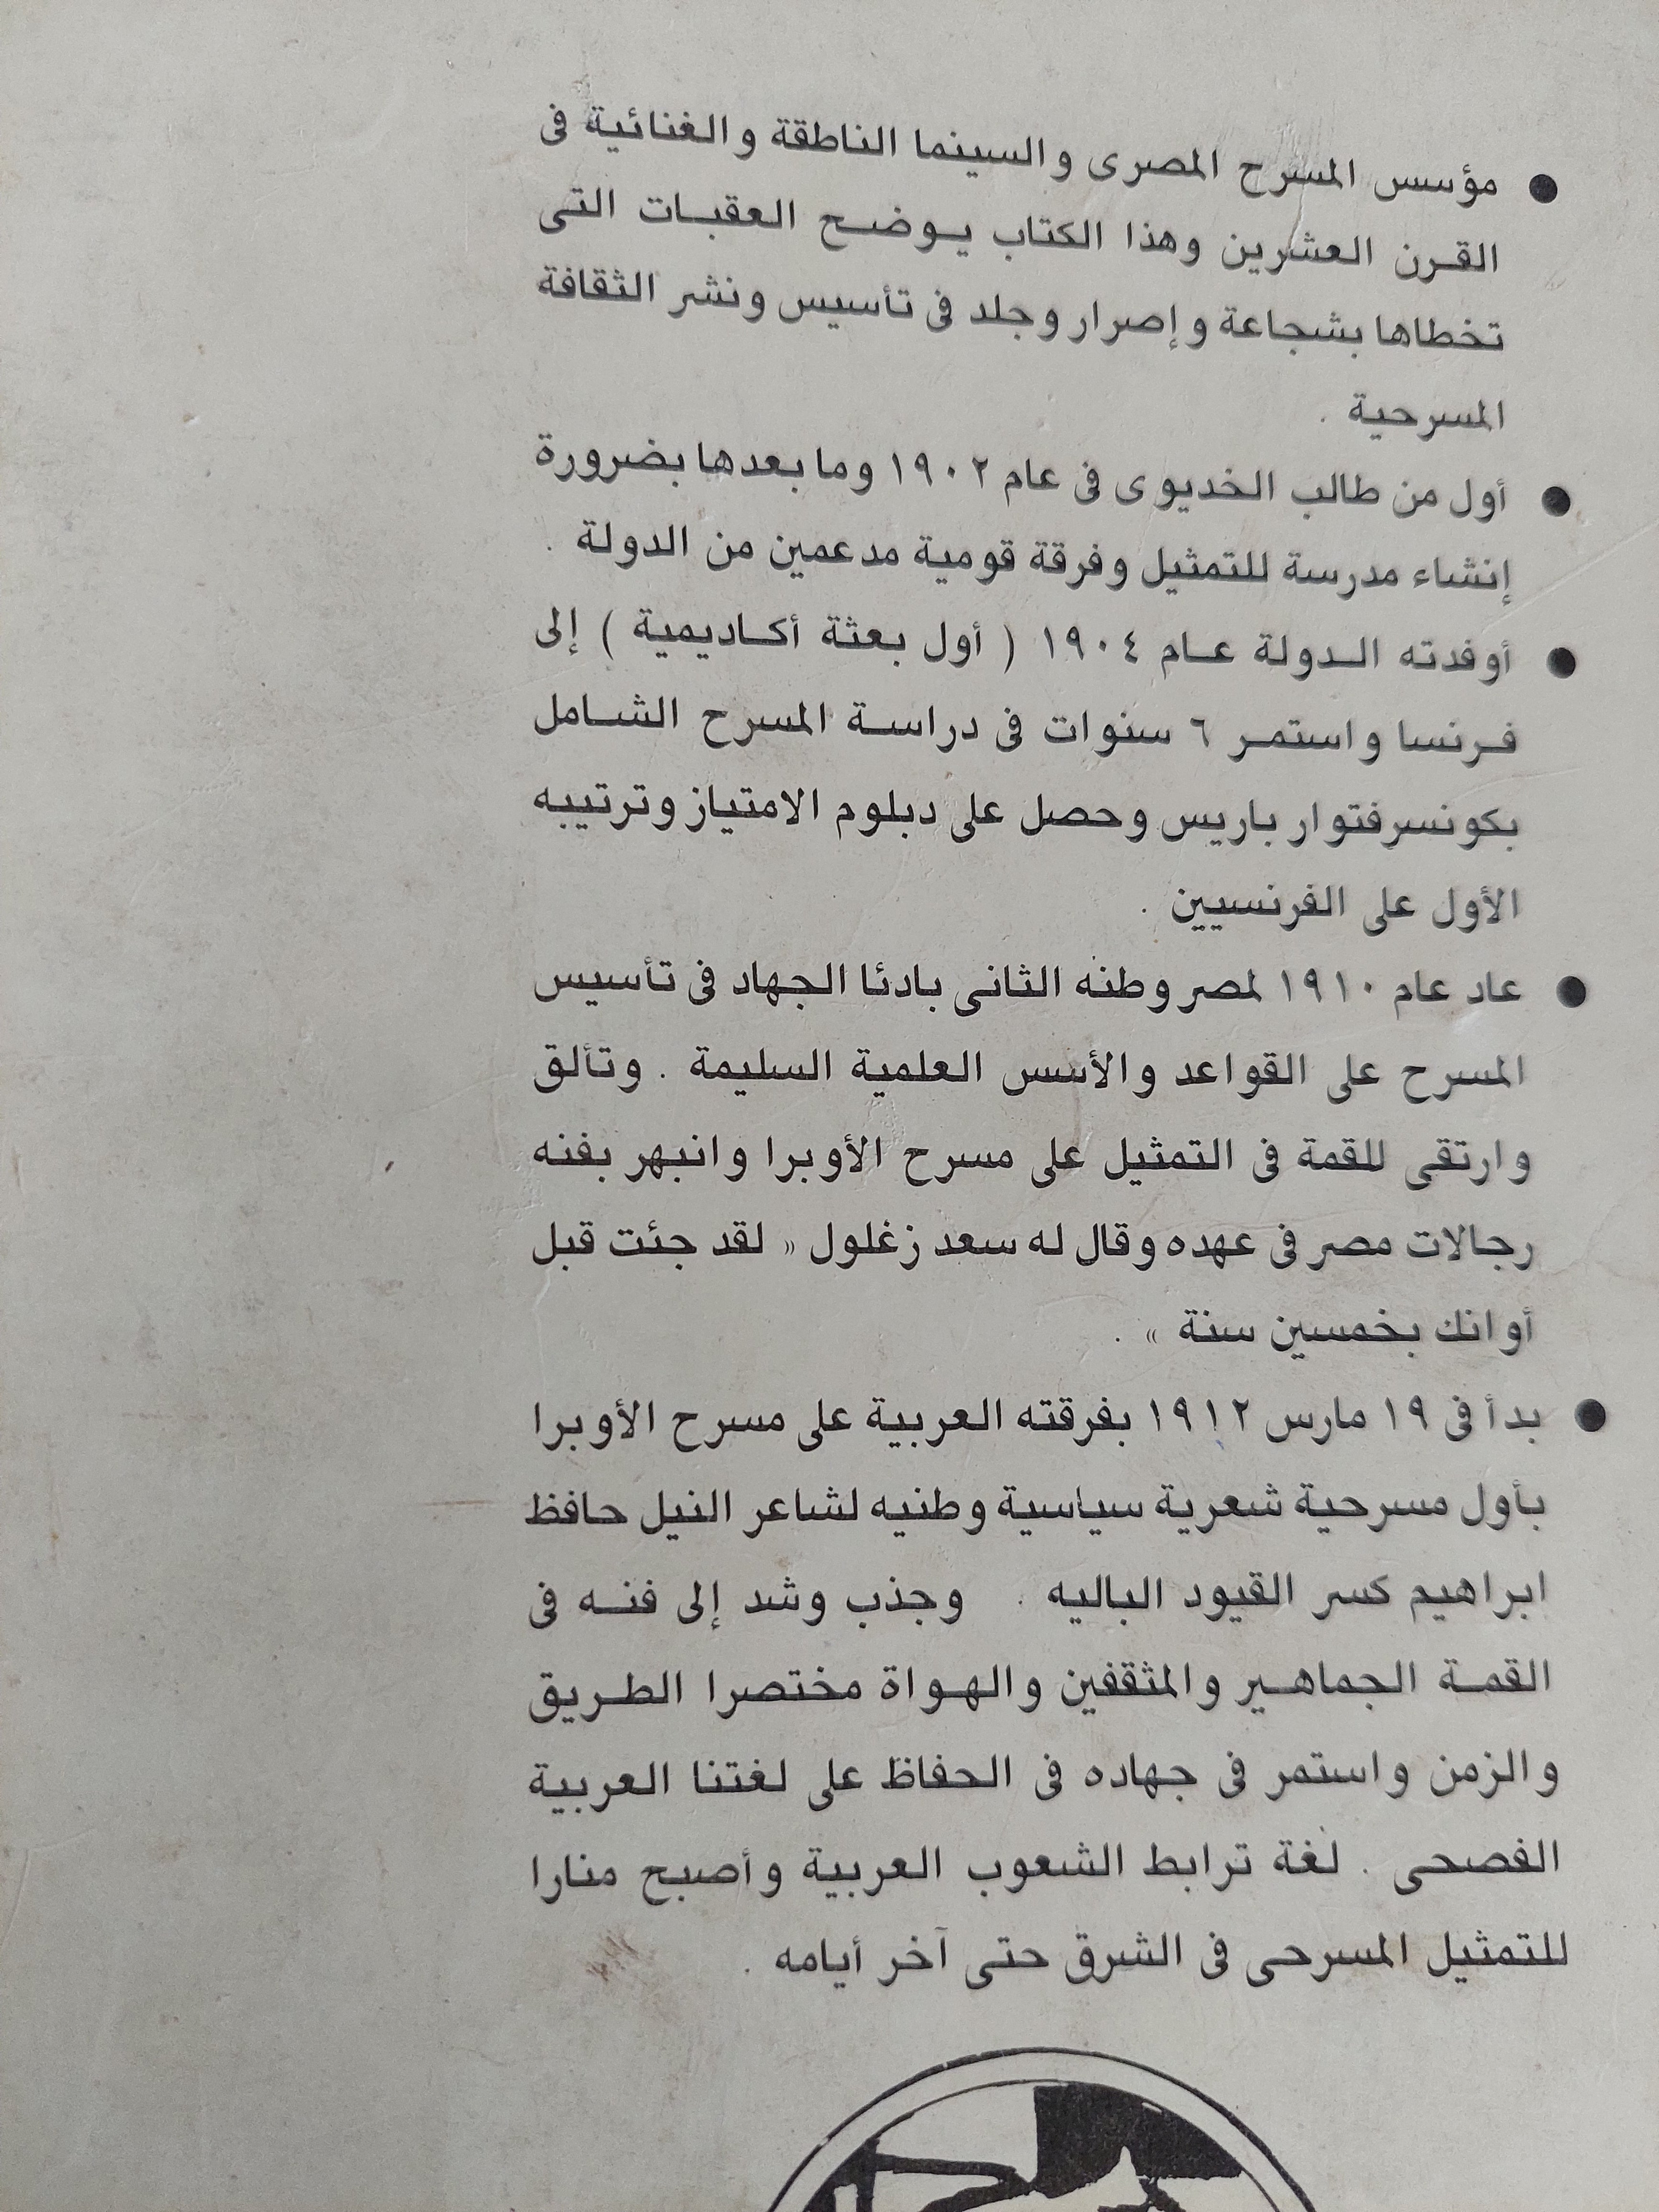 ● مؤسس المسرح المصرى والسينما الناطقة والغنائية فى
القرن العشرين وهذا الكتاب يوضح العقبات التى
تخطاها بشجاعة وإصرار وجلد فى تأسيس ونشر الثقافة
المسرحية .
● أول من طالب الخديوى فى عام ١٩٠٢ وما بعدها بضرورة
إنشاء مدرسة للتمثيل وفرقة قومية مدعمين من الدولة .
● أوفدته الدولة عام ١٩٠٤ ( أول بعثة أكاديمية ) إلى
فرنسا واستمر ٦ سنوات فى دراسة المسرح الشامل
بكونسرفتوار باريس وحصل على دبلوم الامتياز وترتيبه
الأول على الفرنسيين .
● عاد عام ١٩١٠ لمصر وطنه الثانى بادئا الجهاد فى تأسيس
المسرح على القواعد والأسس العلمية السليمة . وتألق
وارتقى للقمة فى التمثيل على مسرح الأوبرا وانبهر بفنه
رجالات مصر فى عهده وقال له سعد زغلول « لقد جئت قبل
أوانك بخمسين سنة » .
● بدأ فى ١٩ مارس ١٩١٢ بفرقته العربية على مسرح الأوبرا
بأول مسرحية شعرية سياسية وطنيه لشاعر النيل حافظ
ابراهيم كسر القيود الباليه . وجذب وشد إلى فنه فى
القمة الجماهير والمثقفين والهواة مختصرا الطريق
والزمن واستمر فى جهاده فى الحفاظ على لغتنا العربية
الفصحى . لغة ترابط الشعوب العربية وأصبح منارا
للتمثيل المسرحى فى الشرق حتى آخر أيامه .